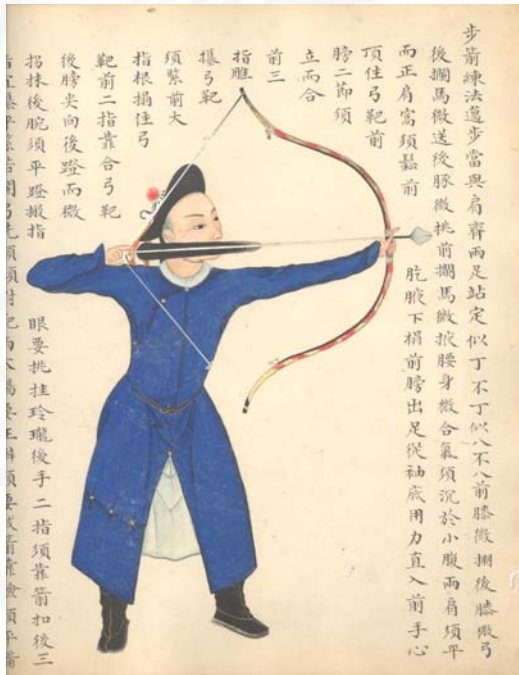 步箭練法邁步當與肩齊兩足站定似丁不丁似八不八前膝微掤後膝微弓
後攔馬微送後豚微挑前攔馬微掖腰身微合氣須沉於小腹兩肩須平
而正肩窩須鬆前肐腋下榻前膀出足從袖底用力直入前手心
頂住弓靶前
膀二節須
立而合
前三
指雎
攥弓靶
須緊前大
指根搨住弓
靶前二指靠合弓靶
後膀尖向後蹬而微
招抹後腕須平蹬搬指眼要挑挂玲瓏後手二指須靠箭扣後三